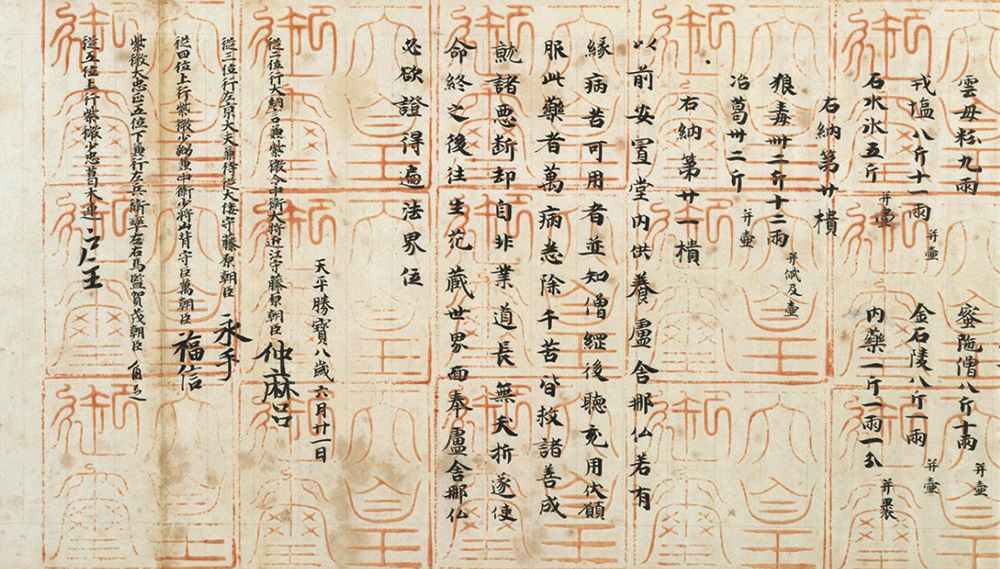 雲母粉九兩
蜜陁僧八斤十兩 并壷
戎塩八斤十一兩 并壷
金石陵八斤一兩 并壷
石水氷五斤 并壷
内藥一斤一兩一分 并褁
右納第廿櫃
狼毒卌二斤十二兩 并甁及壷
冶葛卅二斤 并壷
右納第廿一櫃
以前安置堂内供養盧舍那仏若有
緣病苦可用者並知僧綱後聴充用伏願
服此藥者萬病悉除千苦皆救諸善成
就諸悪断却自非業道長無夭折遂使
命終之後往生花蔵世界面奉盧舍那仏
必欲證得遍法界位
天平勝寳八歳六月廿一日
従二位行大納言兼紫微令中衛大将近江守藤原朝臣 仲麻呂
従三位行左京大夫兼侍従大倭守藤原朝臣 永手
従四位上行紫微少弼兼中衛少将山背守巨萬朝臣 福信
紫微大忠正五位下兼行左兵衛率左右馬監賀茂朝臣 角足
従五位上行紫微少忠葛木連 戸主